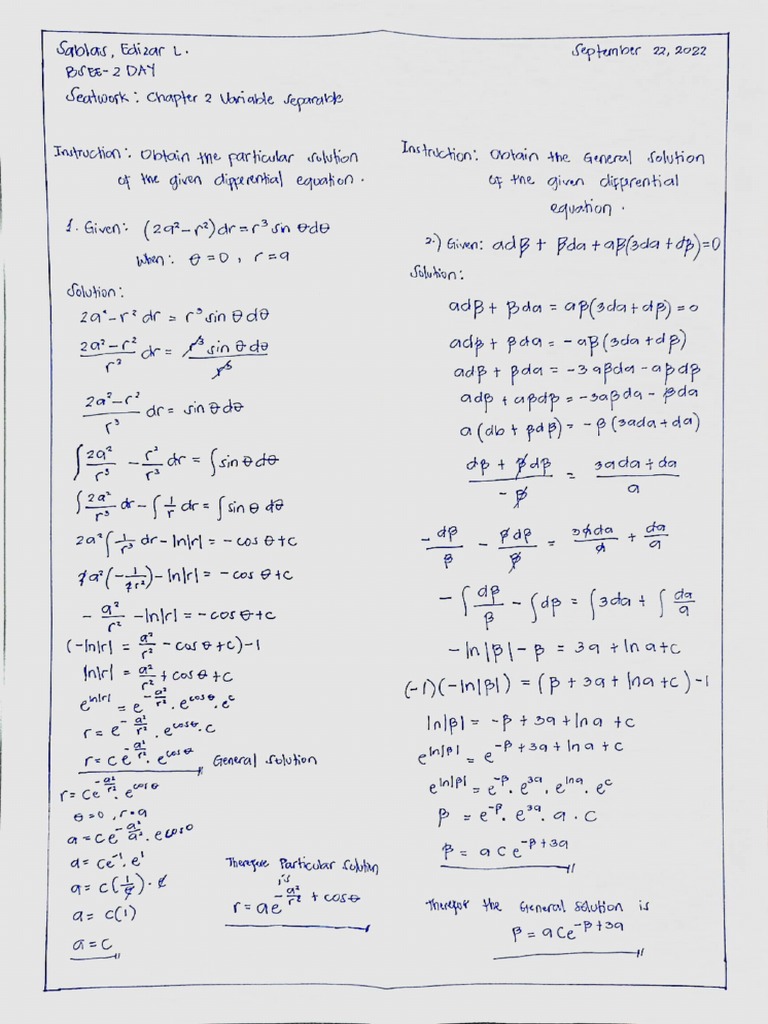 Sablas, Edizar L.
September 22, 2022
BSEE-2 DAY
Seatwork: Chapter 2 Variable Separable
Instruction: Obtain the particular solution
of the given differential equation.
1. Given: (2a²-r²)dr = r³ sin θdθ
When: θ=0, r=a
Solution:
2a²-r² dr = r³ sin θ dθ
2a²-r²/r³ dr = r³ sin θ dθ/r³
2a²-r²/r³ dr = sin θ dθ
∫ 2a²/r³ - r²/r³ dr = ∫ sin θ dθ
∫ 2a²/r³ dr - ∫ 1/r dr = ∫ sin θ dθ
2a² ∫ 1/r³ dr - ln|r| = -cos θ + c
2a²(-1/2r²) - ln|r| = -cos θ + c
- a²/r² - ln|r| = -cos θ + c
(-ln|r| = a²/r² - cos θ + c) -1
ln|r| = a²/r² + cos θ + c
e^ln|r| = e^-a²/r² · e^cos θ · e^c
r = e^-a²/r² · e^cos θ · c
r = c e^-a²/r² · e^cos θ // General solution
r = ce^-a²/r² · e^cos θ
θ=0, r=a
a = ce^-a²/a² · e^cos 0
a = ce^-1 · e^1
a = c(1/e) · e
a = c(1)
a = c
Therefore Particular Solution
is
r = ae^-a²/r² + cos θ
Instruction: Obtain the General solution
of the given diffrential
equation.
2.) Given: adβ + βda + aβ(3da + dβ) = 0
Solution:
adβ + βda = aβ(3da + dβ) = 0
adβ + βda = -aβ(3da + dβ)
adβ + βda = -3aβda - aβdβ
adβ + aβdβ = -3aβda - βda
a(db + βdβ) = -β(3ada + da)
dβ + βdβ/-β = 3ada + da/a
- dβ/β - βdβ/β = 3ada/a + da/a
- ∫ dβ/β - ∫ dβ = ∫ 3da + ∫ da/a
-ln|β| - β = 3a + ln a + c
(-1)(-ln|β|) = (β + 3a + ln a + c) -1
ln|β| = -β + 3a + ln a + c
e^ln|β| = e^-β + 3a + ln a + c
e^ln|β| = e^-β · e^3a · e^ln a · e^c
β = e^-β · e^3a · a · c
β = a c e^-β + 3a
Therefor the General Solution is
β = a Ce^-β + 3a